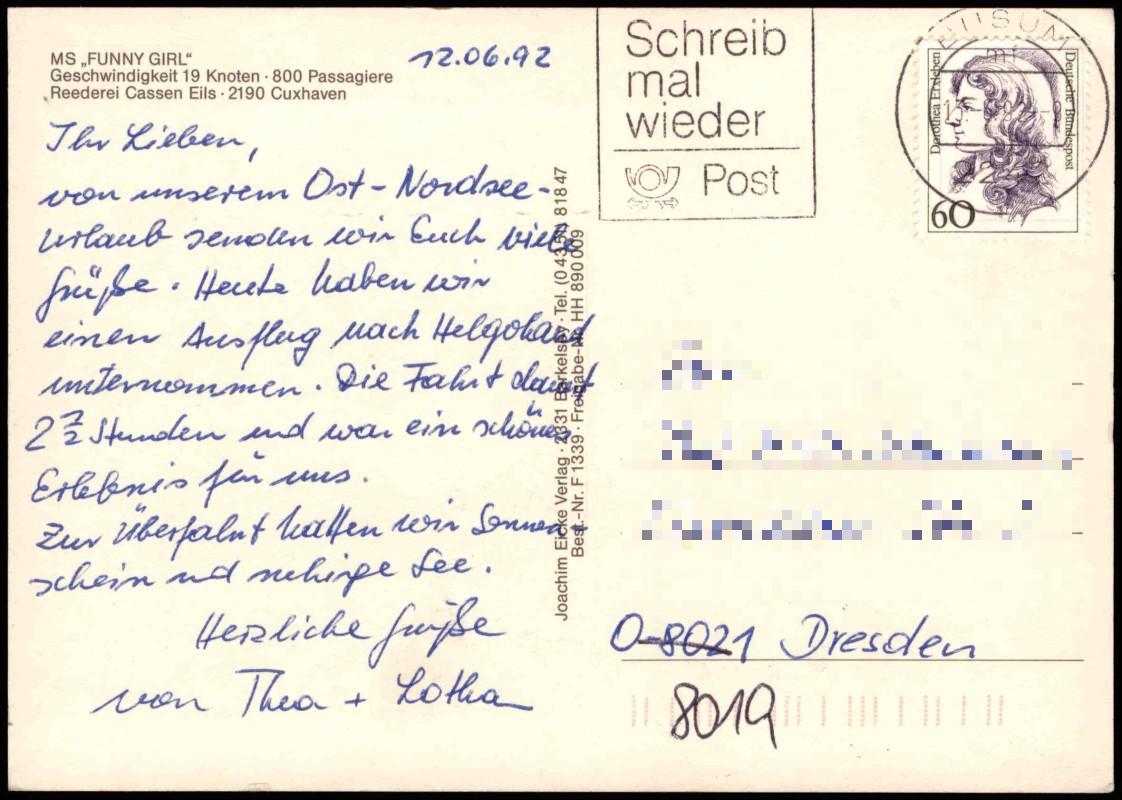 MS „FUNNY GIRL“
Geschwindigkeit 19 Knoten · 800 Passagiere
Reederei Cassen Eils · 2190 Cuxhaven
12.06.92
Ihr Lieben,
von unserem Ost-Nordsee-
urlaub senden wir Euch viele
Grüße. Heute haben wir
einen Ausflug nach Helgoland
unternommen. Die Fahrt dauert
2 1/2 Stunden und war ein schönes
Erlebnis für uns.
Zur Überfahrt hatten wir Sonnen-
schein und ruhige See.
Herzliche Grüße
von Thea + Lothar
Joachim Eicke Verlag · 2331 Barkelsby · Tel. (0 43 58) 818 47
Best.-Nr. F 1339 · Freigabe-Nr. HH 890 009
Schreib
mal
wieder
Post
HUSUM
Dorothea Erxleben
Deutsche Bundespost
60
O-8021 Dresden
8019